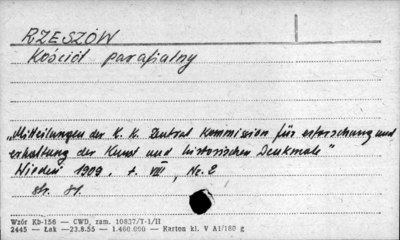 RZESZÓW
Kościół parafialny
"Mitteilungen der K. K. Zentral Kommission für erforschung und
erhaltung der Kunst und historischen Denkmale"
Wiedeń 1909. t. VIII, Nr. 2
str. 81.
Wzór Kb-156 — CWD, zam. 10837/T-1/II
2445 — Łak —23.8.55 — 1.460.000 — Karton kl. V A1/180 g